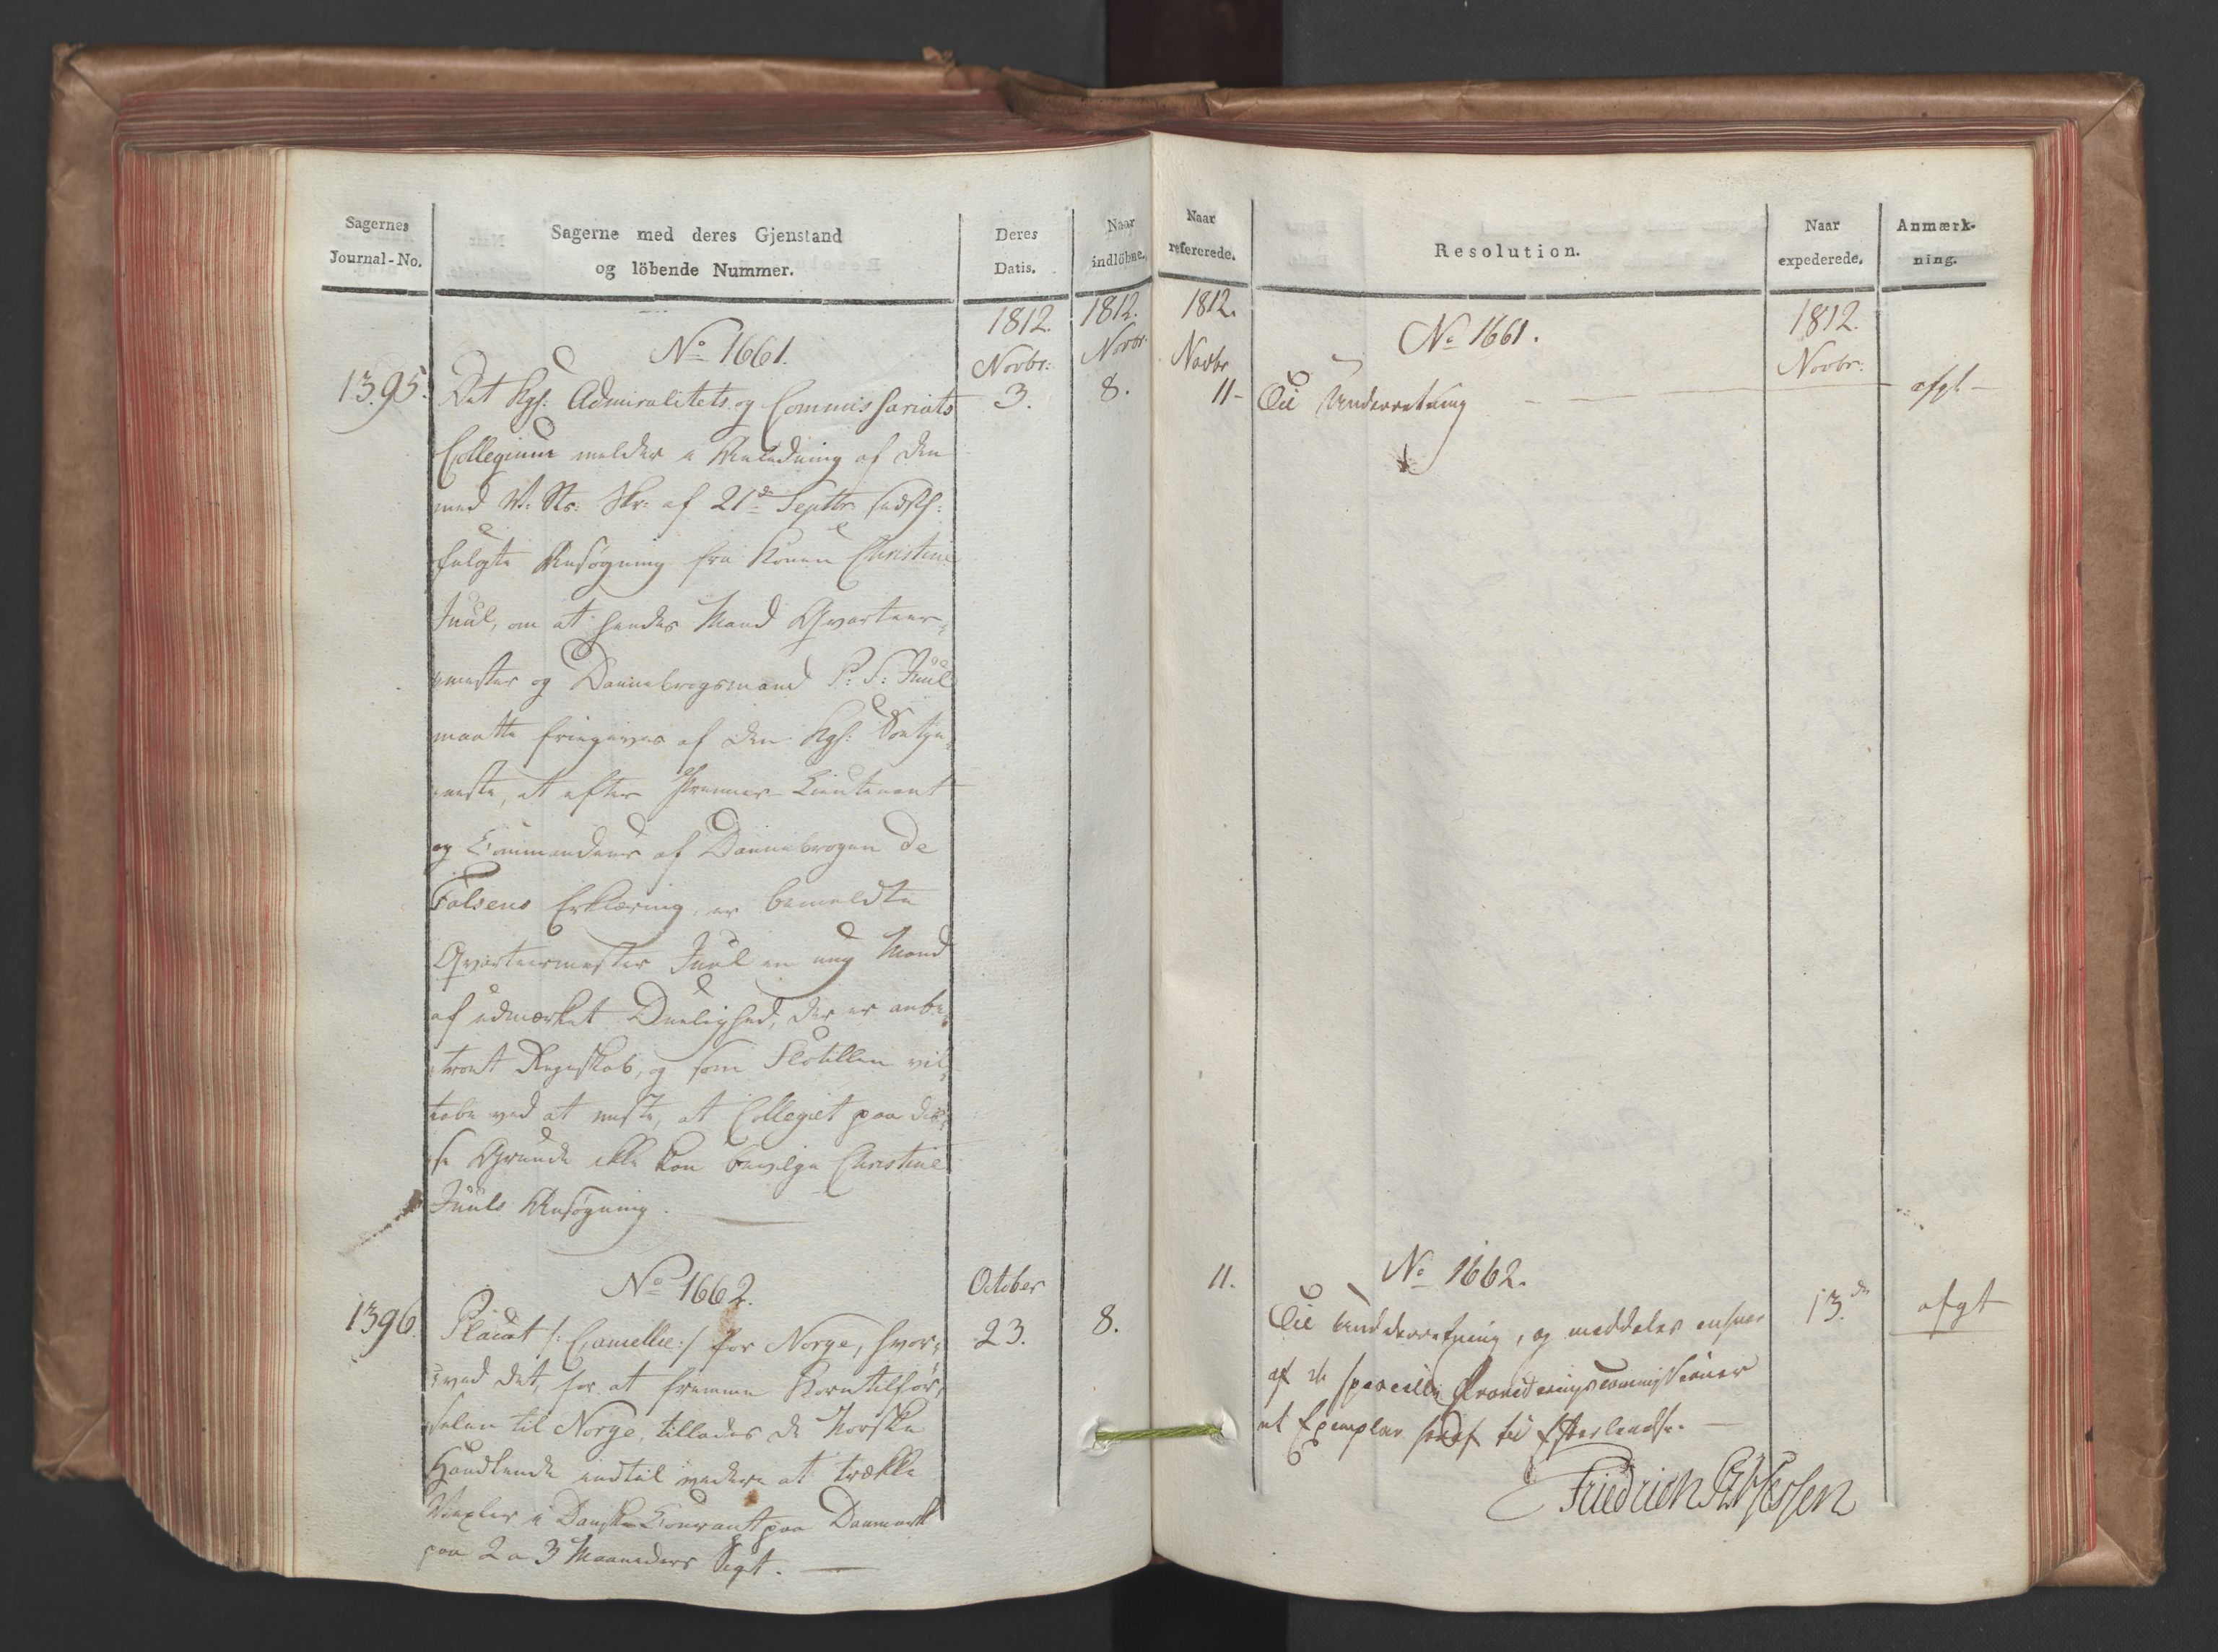 Sagernes
Journal-No.
Sagerne med deres Gjenstand
og löbende Nummer.
Deres
Datis.
Naar
indlöbne.
1812.
Novbr:
1812.
Novbr.
No 1661.
1395.
3.
8.
Det Kgl: Admiralitets og Commissariats
Collegium melder i Anledning af den
med W. Rs: Skr: af 21de Septbr
fulgte Ansøgning fra Konen Christine
Juul, om at hendes Mand Qvarteer-
mester og Dannebrogsmand P: S: Juul
maatte friegives af den Kgl: Søetje-
neste, at efter Premier Lieutenant
og Commandeur af Dannebrogen de
Falsens Erklæring, er bemeldte
Qvarteermester Juul en ung Mand
af udmærket Duelighed, der er anbe-
troet Regnskab, og som Flotillen vil
tabe ved at miste, at Collegiet paa dis-
se Grunde ikke kan bevilge Christine
Juuls Ansøgning.
No 1662.
October
1396.
23.
8.
Placat /: Cancellie :/ for Norge, hvor-
ved det, for at fremme Korntilfør-
selen til Norge, tillades de Norske
Handlende indtil videre at trække
Vexler i Dansk Courant paa Danmark
paa 2 a 3 Maaneders Sigt.
Naar
refererede.
Resolution.
Naar
expederede.
Anmærk-
ning.
1812.
Novbr
1812.
Novbr:
No 1661.
11-
Til Underretning
afgl
No 1662.
11.
Til Underretning, og meddeles enhver
af de specielle Provideringscommissioner
et Exemplar til Efterlevelse.
13de
afgt
Friedrich